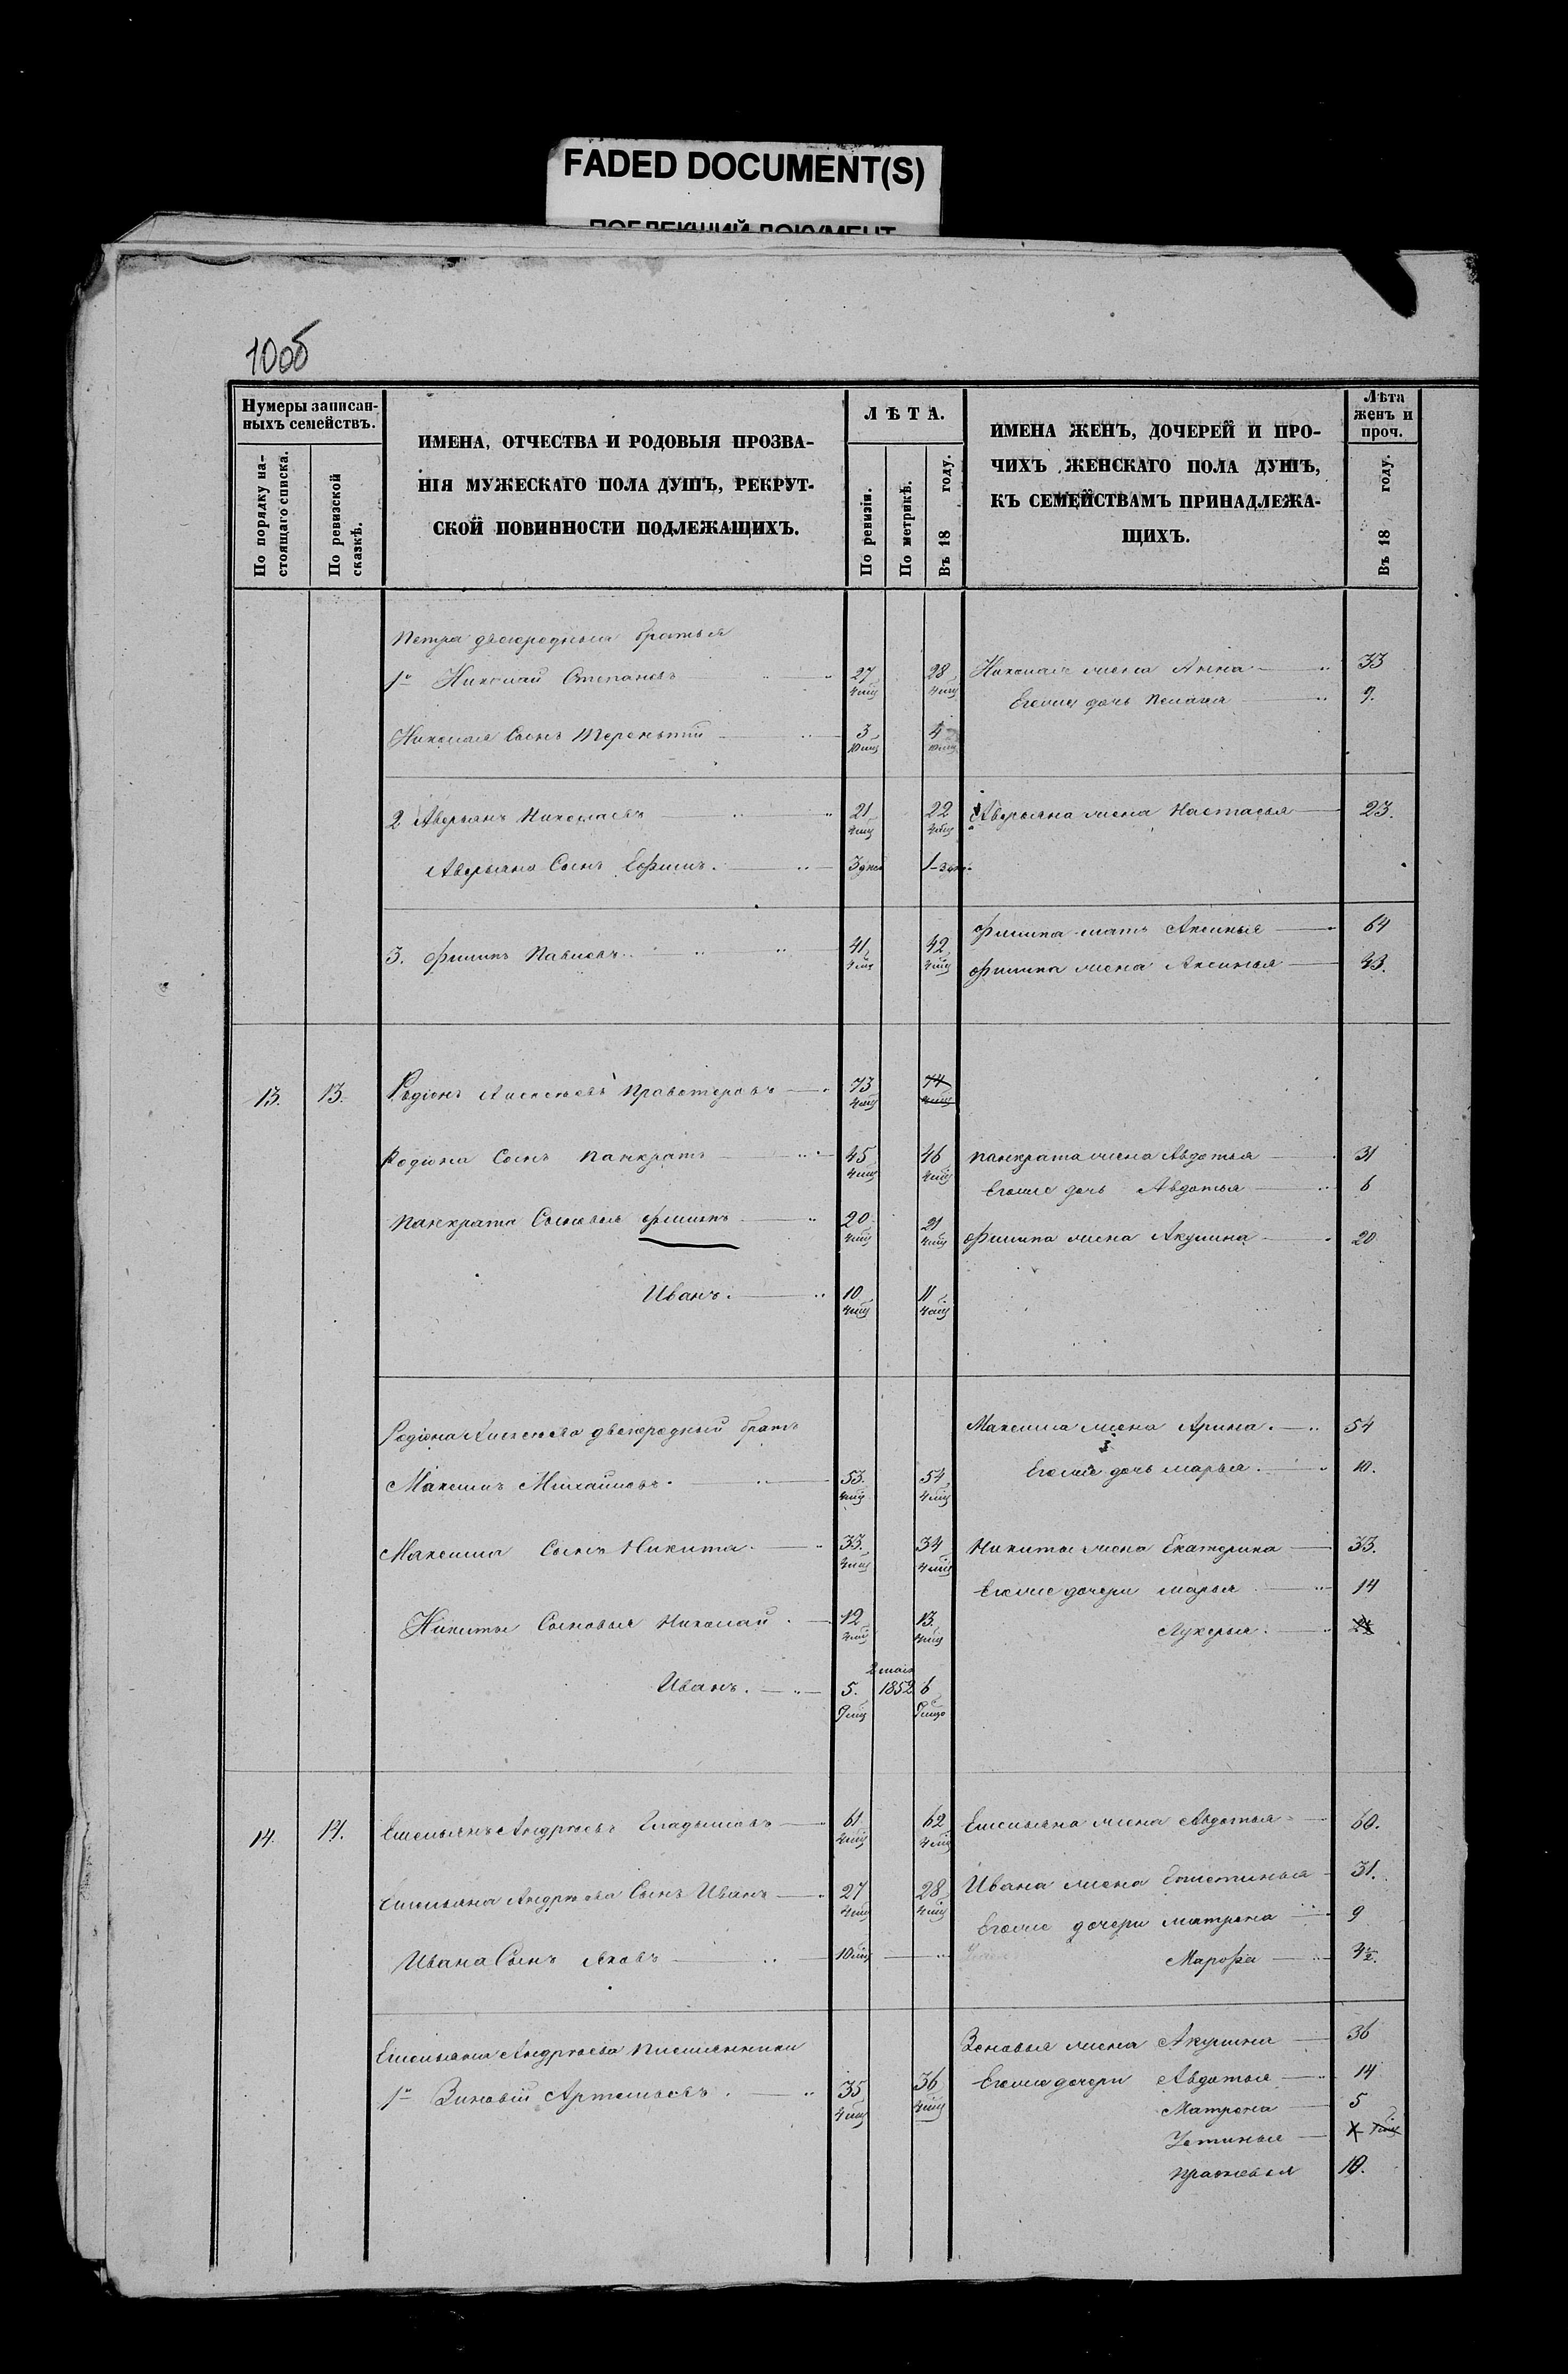 FADED DOCUMENT(S)
ПОБЛЕКШИЙ ДОКУМЕНТ
10об
Нумеры записан-
ныхъ семействъ.
По порядку на-
стоящаго списка.
По ревизской
сказкѣ.
ИМЕНА, ОТЧЕСТВА И РОДОВЫЯ ПРОЗВА-
НІЯ МУЖЕСКАГО ПОЛА ДУШЪ, РЕКРУТ-
СКОЙ ПОВИННОСТИ ПОДЛЕЖАЩИХЪ.
ЛѢТА.
По ревизіи.
По метрикѣ.
Въ 18 году.
ИМЕНА ЖЕНЪ, ДОЧЕРЕЙ И ПРО-
ЧИХЪ ЖЕНСКАГО ПОЛА ДУШЪ,
КЪ СЕМЕЙСТВАМЪ ПРИНАДЛЕЖА-
ЩИХЪ.
Лѣта
женъ и
проч.
Въ 18 году.
Петра двоюродныя братья
1е Николай Степановъ 27 4 мц 28 4 мц Николая жена Анна 33
Егоже дочь Пелагея 9.
Николая Сынъ Терентій 3 10 мц 4 10 мц
2 Аверьянъ Николаевъ 21 4 мц 22 4 мц Аверьяна жена Настасья 23.
Аверьяна Сынъ Ефимъ. 3 дней 1
3. Филипъ Павловъ 41 4 мц 42 4 мц Филипа мать Аксинья 64
Филипа жена Аксинья 43.
13. 13. Родіонъ Алексѣевъ 73 4 мц 74 4 мц
Родіона Сынъ Панкратъ 45 4 мц 46 4 мц Панкрата жена Авдотья 31
Егоже дочь Авдотья 6
Панкрата Сыновья Филипъ 20 4 мц 21 4 мц Филипа жена Акулина 20
Иванъ. 10 4 мц 11 4 мц
Родіона Алексѣева двоюродный братъ
Максима жена Арина. 54
Максимъ Михайловъ. 53. 4 мц 54 4 мц Егоже дочь Марья. 10.
Максима Сынъ Никита. 33. 4 мц 34 4 мц Никиты жена Екатерина 33.
Егоже дочери Марья 14
Никиты Сыновья Николай 12 4 мц 13. 4 мц Лукерья.
Иванъ. 5. 9 мц 2 мая 1852 6 9 мцо
14. 14. Емельянъ Андреевъ Гладышовъ 61 4 мц 62 4 мц Емельяна жена Авдотья 60.
Емельяна Андреева Сынъ Иванъ 27 4 мц 28 4 мц Ивана жена Епистинья 31.
Егоже дочери Матрена 9
Ивана Сынъ Яковъ 10 мц Марфа 4½.
Емельяна Андреева Племянники
Зеновья жена Акулина 36
1е Зиновій Артемьевъ. 35 4 мц 36 4 мц Егоже дочери Авдотья 14
Матрена 5
Устинья
Прасковья 10.